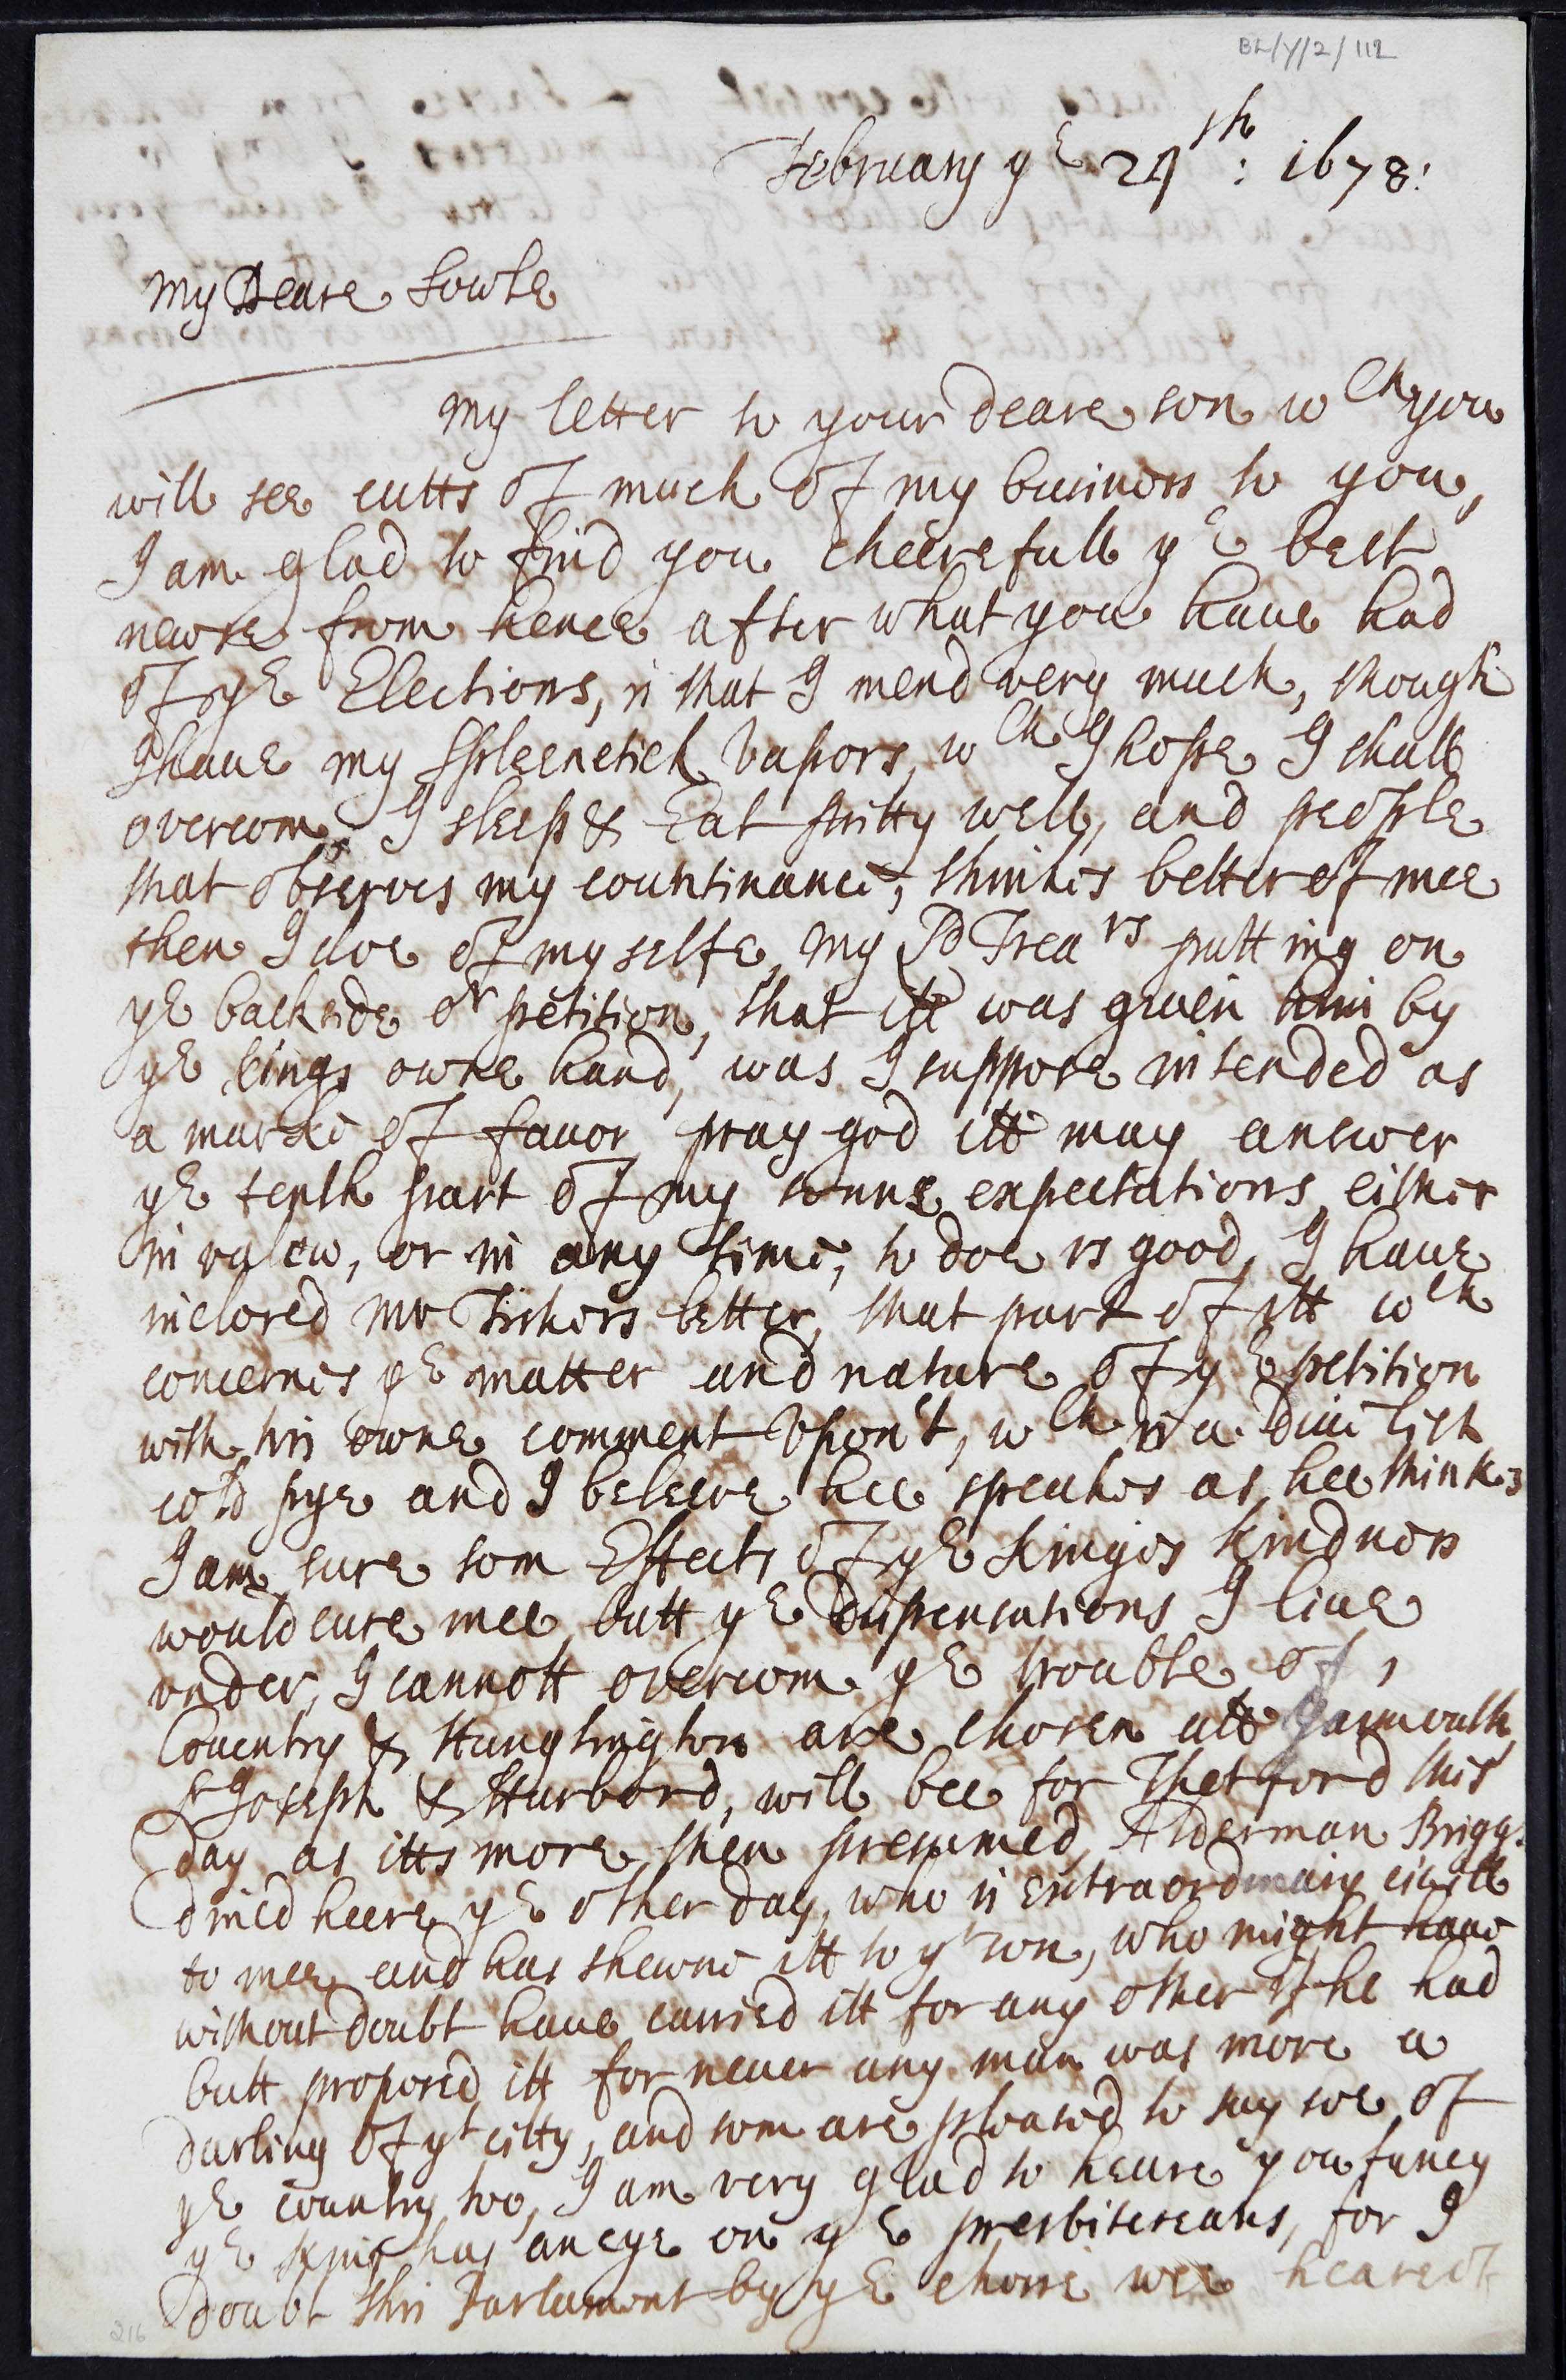 BL/Y/2/112
February ye 24th: 1678:
My Deare Sowle
My letter to your deare son wch you
will see cutts of much of my businoss to you,
I am glad to find you cheerefull ye best
newse from hence after what you haue had
of ye Elections, is that I mend very much, though
I haue my Spleenetick Vapors, wch I hope I shall
overcom, I sleep & Eat pritty well, and people
that observes my countinance, thinkes better of mee
then I doe of my selfe, My Ld Trears putting on
ye backside or petition, that itt was giuen him by
ye kings owne hand, was I suppose intended as
a marke of favor, pray god itt may answer
ye tenth part of my sonns expectations, either
in valew, or in any time, to doe vs good, I haue
inclosed Mr Tishers letter, that part of itt wch
concernes ye matter and nature of ye petition
with his owne comment Vpon't, wch is a
cold pye and I beleeve hee speakes as hee thinkes
I am sure som Effects of ye Kinges kindnoss
would cure mee, butt ye Dispensations I liue
vnder, I cannott overcom ye trouble of,
Couentry & Hunghington are chosen att Yarmouth
Sr Joseph & Harbord, will bee for Thetford this
day as itts more then presumed, Alderman Briggs
dined heere ye other day, who is extraordinary ciuill
to mee and has shewne itt to yr son, who might haue
without doubt haue carried itt for any other if he had
butt proposed itt for neuer any man was more a
darling of yt citty, and som are pleased to say soe of
ye country too, I am very glad to heare you fancy
ye has an eye on ye presbitereans, for I
doubt this Parlament by ye choise wee heare of
216